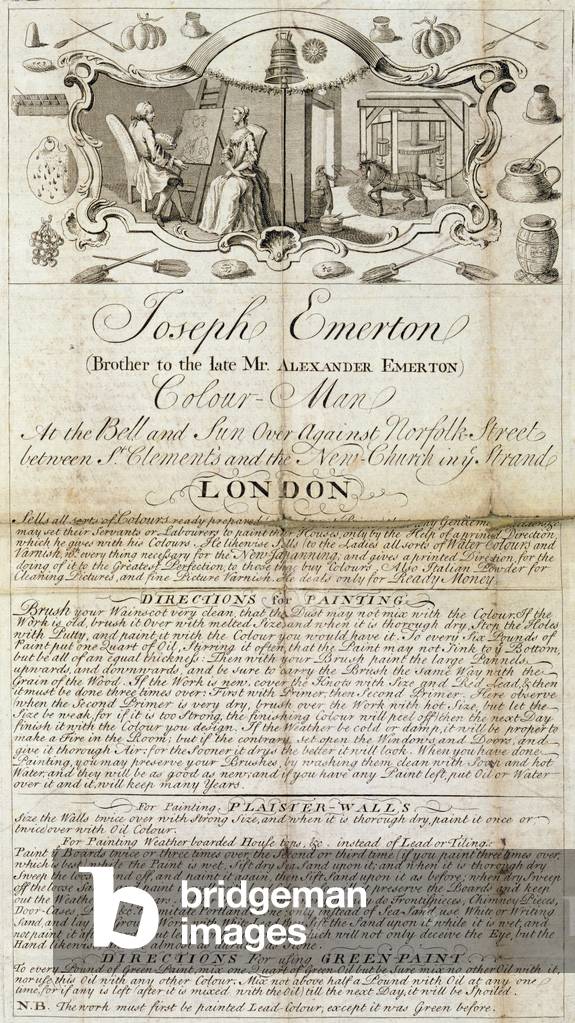 Joseph Emerton
(Brother to the late Mr. ALEXANDER EMERTON)
Colour-Man
At the Bell and Sun Over Against Norfolk-Street
between St. Clement's and the New-Church in ye. Strand
LONDON
Sells all sorts of Colours ready prepared any Gentlemen
may set their Servants or Labourers to paint their Houses, only by the Help of a printed Direction,
which he gives with his Colours. He likewise Sells to the Ladies all sorts of Water Colours and
Varnish, wth. every thing necessary for the New Japanning, and gives a printed Direction, for the
doing of it to the Greatest Perfection, to those that buy Colours. Also Italian Powder for
Cleaning Pictures, and fine Picture Varnish. He deals only for Ready Money.
DIRECTIONS for PAINTING.
Brush your Wainscot very clean, that the Dust may not mix with the Colour. If the
Work is old, brush it Over with melted Size, and when it is thorough dry, Stop the Holes
with Putty, and paint it with the Colour you would have it. To every Six Pounds of
Paint put one Quart of Oil, Styrring it often, that the Paint may not Sink to ye. Bottom,
but be all of an equal thickness: Then with your Brush paint the large Pannels
upwards, and downwards, and be sure to carry the Brush the Same Way with the
Grain of the Wood. If the Work is new, cover the Knots with Size, and Red Lead, & then
it must be done three times over: First with Primer, then Second Primer: Here observe
when the Second Primer is very dry, brush over the Work with hot Size, but let the
Size be weak, for if it is too Strong, the finishing Colour will peel off) then the next Day
finish it with the Colour you design. If the Weather be cold or damp, it will be proper to
make a Fire in the Room; but if the contrary, set open the Windows and Doors, and
give it thorough Air; for the Sooner it drys the better it will look. When you have done
Painting, you may preserve your Brushes, by washing them clean with Soap and hot
Water, and they will be as good as new; and if you have any Paint left, put Oil or Water
over it and it will keep many Years.
For Painting PLAISTER-WALLS
Size the Walls twice over with Strong Size, and when it is thorough dry, paint it once or
twice over with Oil Colour.
For Painting Weather boarded House tops, &c. instead of Lead or Tiling.
Paint ye. Boards twice or three times over, the Second or third time if you paint three times over,
which is best, while the Paint is wet, Sift dry Sea Sand upon it, and when it is thorough dry
Sweep the Sand off, and paint it again, then Sift Sand upon it as before, when dry Sweep
off the loose Sand preserve the Boards and keep
out the Weather Frontispieces, Chimney Pieces,
Door-Cases instead of Sea Sand, use White or Writing
Sand, and the Sand upon it while it is wet, and
not paint which will not only deceive the Eye, but the
Hand likewise almost as Stone.
DIRECTIONS For using GREEN-PAINT
To every Pound of Green-Paint, mix one Quart of Green Oil but be Sure mix no other Oil with it,
nor use this Oil with any other Colour. Mix not above half a Pound with Oil at any one
time, for if any is left (after it is mixed with the Oil) till the next Day, it will be Spoiled.
N.B. The work must first be painted Lead-Colour, except it was Green before.
b
bridgeman
images